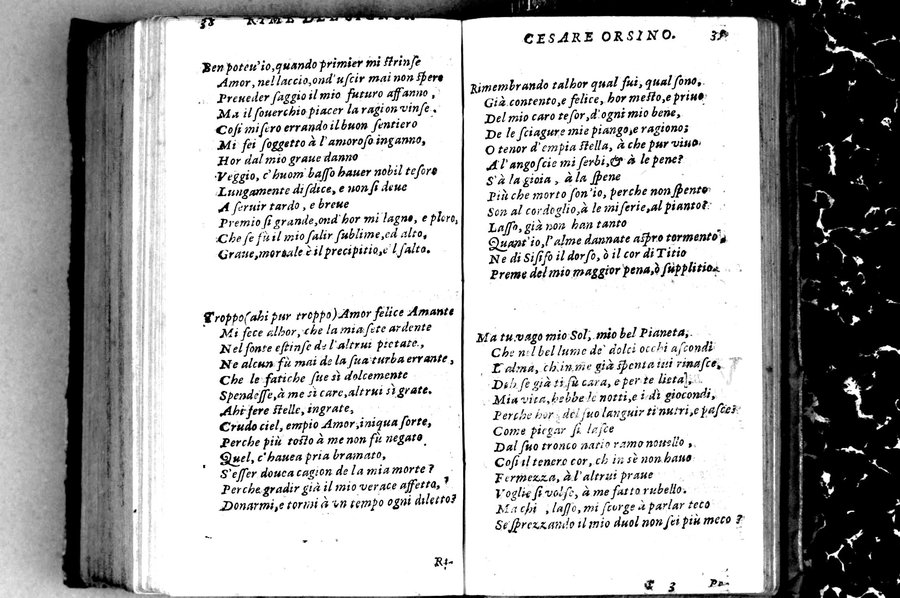 38 RIME DEL SIGNOR
Ben poteu'io, quando primier mi strinse
Amor, nel laccio, ond'uscir mai non spero
Preueder saggio il mio futuro affanno,
Ma il souerchio piacer la ragion vinse.
Cosi misero errando il buon sentiero
Mi fei soggetto à l'amoroso inganno,
Hor dal mio graue danno
Veggio, c'huom basso hauer nobil tesoro
Lungamente disdice, e non si deue
A seruir tardo, e breue
Premio si grande, ond'hor mi lagno, e ploro,
Che se fù il mio salir sublime, ed alto,
Graue, mortale è il precipitio, e'l salto.
Troppo (ahi pur troppo) Amor felice Amante
Mi fece alhor, che la mia sete ardente
Nel fonte estinse de l'altrui pietate,
Ne alcun fù mai de la sua turba errante,
Che le fatiche sue sì dolcemente
Spendesse, à me sì care, altrui sì grate.
Ahi fere stelle, ingrate,
Crudo ciel, empio Amor, iniqua sorte,
Perche più tosto à me non fù negato
Quel, c'hauea pria bramato,
S'esser douea cagion de la mia morte?
Perche gradir già il mio verace affetto,?
Donarmi, e tormi à vn tempo ogni diletto?
Ri-
CESARE ORSINO. 39
Rimembrando talhor qual fui, qual sono,
Già contento, e felice, hor mesto, e priuo
Del mio caro tesor, d'ogni mio bene,
De le sciagure mie piango, e ragiono;
O tenor d'empia stella, à che pur viuo
A l'angoscie mi serbi, & à le pene?
S'à la gioia, à la spene
Più che morto son'io, perche non spento
Son al cordoglio, à le miserie, al pianto?
Lasso, già non han tanto
Quant'io, l'alme dannate aspro tormento,
Ne di Sisifo il dorso, ò il cor di Titio
Preme del mio maggior pena, ò supplitio.
Ma tu, vago mio Sol, mio bel Pianeta,
Che nel bel lume de' dolci occhi ascondi
L'alma, ch'in me già spenta iui rinasce,
Deh se già ti fù cara, e per te lieta
Mia vita, hebbe le notti, e i dì giocondi,
Perche hor del suo languir ti nutri, e pasce?
Come piegar si lasce
Dal suo tronco natio ramo nouello,
Cosi il tenero cor, ch'in sè non haue
Fermezza, à l'altrui praue
Voglie si volse, à me fatto rubello.
Ma chi, lasso, mi scorge à parlar teco
Se sprezzando il mio duol non sei più meco?
C 3 Pe-